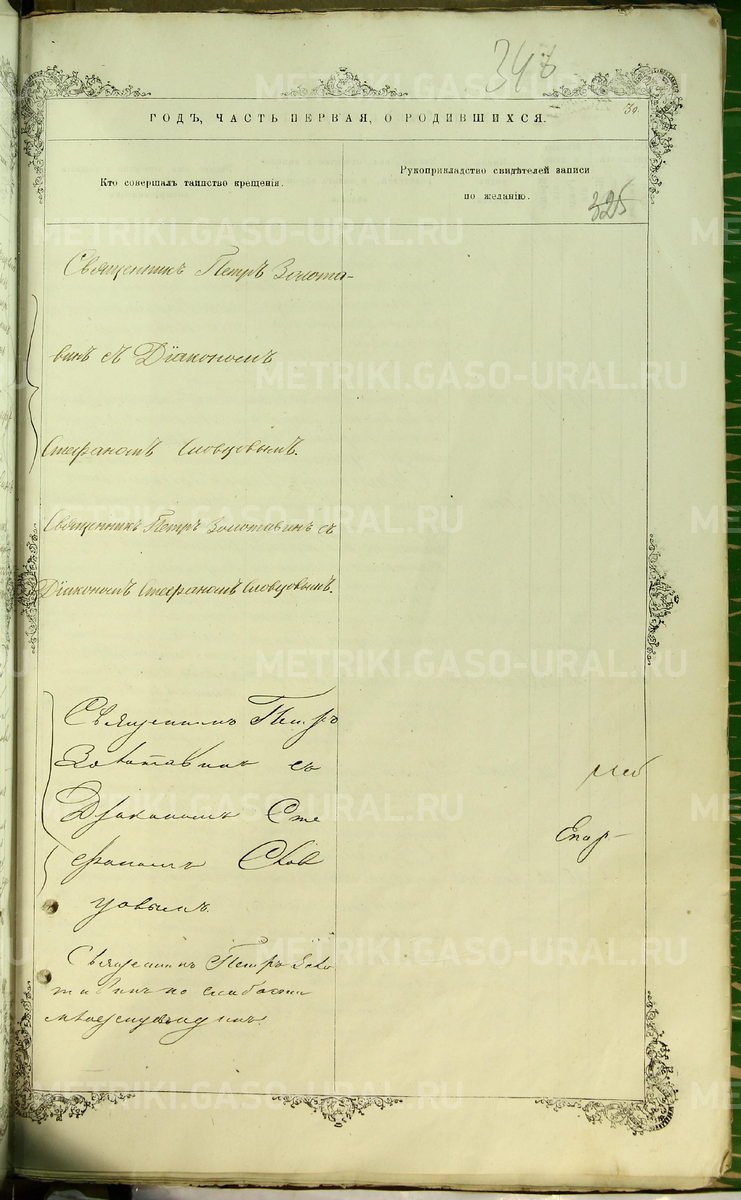 348
ГОДЪ, ЧАСТЬ ПЕРВАЯ, О РОДИВШИХСЯ.
30.
Кто совершалъ таинство крещенія.
Рукоприкладство свидѣтелей записи
по желанію.
325
Священникъ Петръ Золота-
винъ съ Діакономъ
Стефаномъ Словцовымъ.
Священникъ Петръ Золотавинъ съ
Діакономъ Стефаномъ Словцовымъ.
Священникъ Петръ
Золотавинъ съ
Діакономъ Сте
фаномъ Слов
цовымъ.
Священникъ Петръ Золо
тавинъ по слабости
Епар-
METRIKI.GASO-URAL.RU